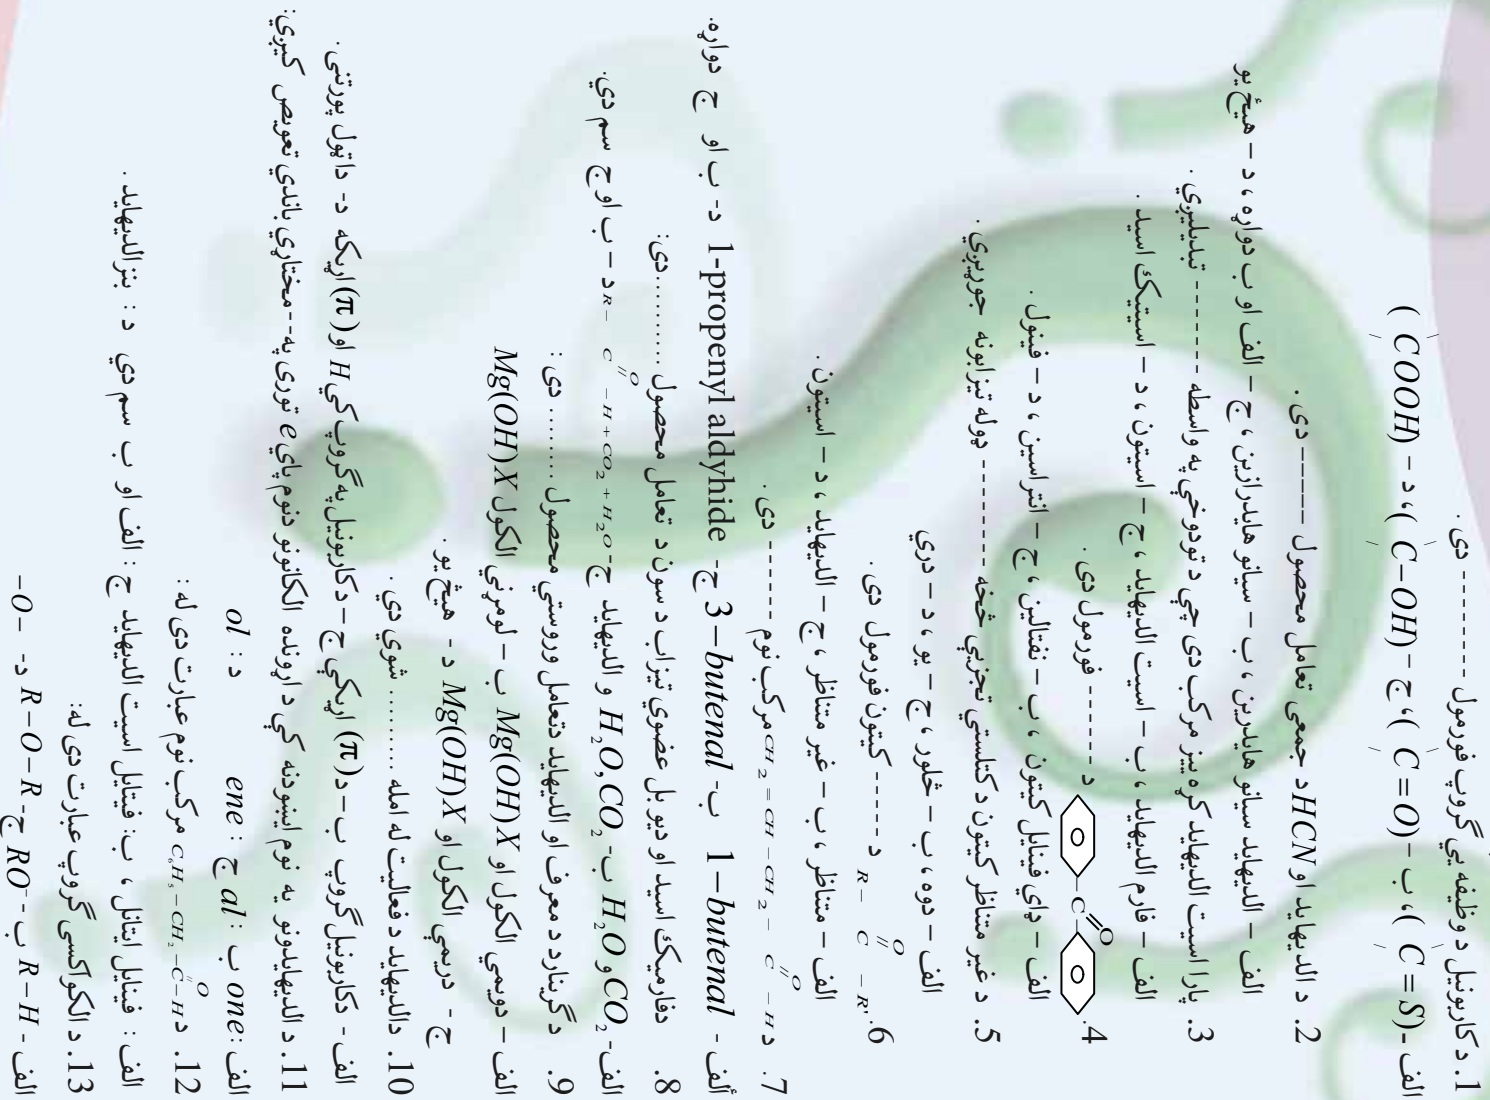 1. د کاربونیل د وظیفه یي گروپ فورمول ---------- دی .
الف - (C = S) ب، - (C = O) ج، - (C – OH) د، - (COOH)
2. د الدیهاید او HCN د جمعی تعامل محصول ------ دی .
الف – الدیهاید سیانو هایدرازین ، ب – سیانو هایدرین ، ج – الف او ب دواړه ، د – هیڅ یو
3. پارا اسیت الدیهاید کړه ییز مرکب دی چي د تودوخي په واسطه -------- تبدیلیږي .
الف – فارم الدیهاید ، ب – اسیت الدیهاید ، ج – اسیتون ، د – استیک اسید .
4. C O د ------- فورمول دی .
الف – ډای فینایل کیتون ، ب – نفتالین ، ج – انتراسین ، د – فینول .
5. د غیر متناظر کیتون د کتلستي تجزیي څخه ---------- ډوله تیزابونه جوړیږي .
الف – دوه ، ب – څلور ، ج – یو ، د – دري
6. R – C – R' O د ------ کیتون فورمول دی .
الف – متناظر ، ب – غیر متناظر ، ج – الدیهاید ، د – اسیتون .
7. د CH2 = CH – CH2 – C – H O مرکب نوم ------- دی .
ألف - 1 – butenal ب- 3 – butenal ج- 1-propenyl aldyhide د- ب او ج دواړه.
8. دفارمیک اسید او دیو بل عضوي تیزاب د سون د تعامل محصول ..........دی:
الف- CO2 و H2O ب- H2O,CO2 و الدیهاید ج- R – C – H + CO2 + H2O O د – ب او ج سم دي.
9. د گرینارد د معرف او الدیهاید دتعامل وروستي محصول ......... دی :
الف – دویمي الکول او Mg(OH)X ب – لومړني الکول Mg(OH)X
ج- دریمي الکول او Mg(OH)X د- هیڅ یو .
10. دالدیهاید د فعالیت له امله ......... شوي دي .
الف - دکاربونیل گروپ ب – د (π) اړیکي ج – دکاربونیل په گروپ کي H او (π) اړیکه د- داټول پورتنی .
11. د الدیهایدونو په نوم ایښودنه کي د اړونده الکانونو دنوم پای e توری په --مختاړي باندي تعویض کیږي:
الف :one ب :al ج :ene د :ol
12. د C6H5 – CH2 – C – H O مرکب نوم عبارت دی له :
الف : فینایل ایتانل ، ب: فینایل اسیت الدیهاید ج : الف او ب سم دي د : بنزالدیهاید .
13. د الکواکسی گروپ عبارت دی له:
الف - R – H ب- RO- ج R – O – R د- –O–